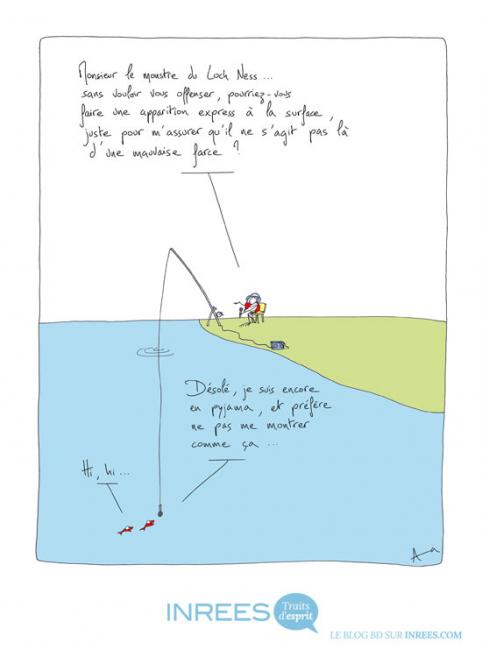 Monsieur le monstre du Loch Ness...
sans vouloir vous offenser, pourriez-vous
faire une apparition express à la surface,
juste pour m'assurer qu'il ne s'agit pas là
d'une mauvaise farce ?
Désolé, je suis encore
en pyjama, et préfère
ne pas me montrer
comme ça ...
Hi, hi ...
INREES
Traits
d'esprit
LE BLOG BD SUR INREES.COM